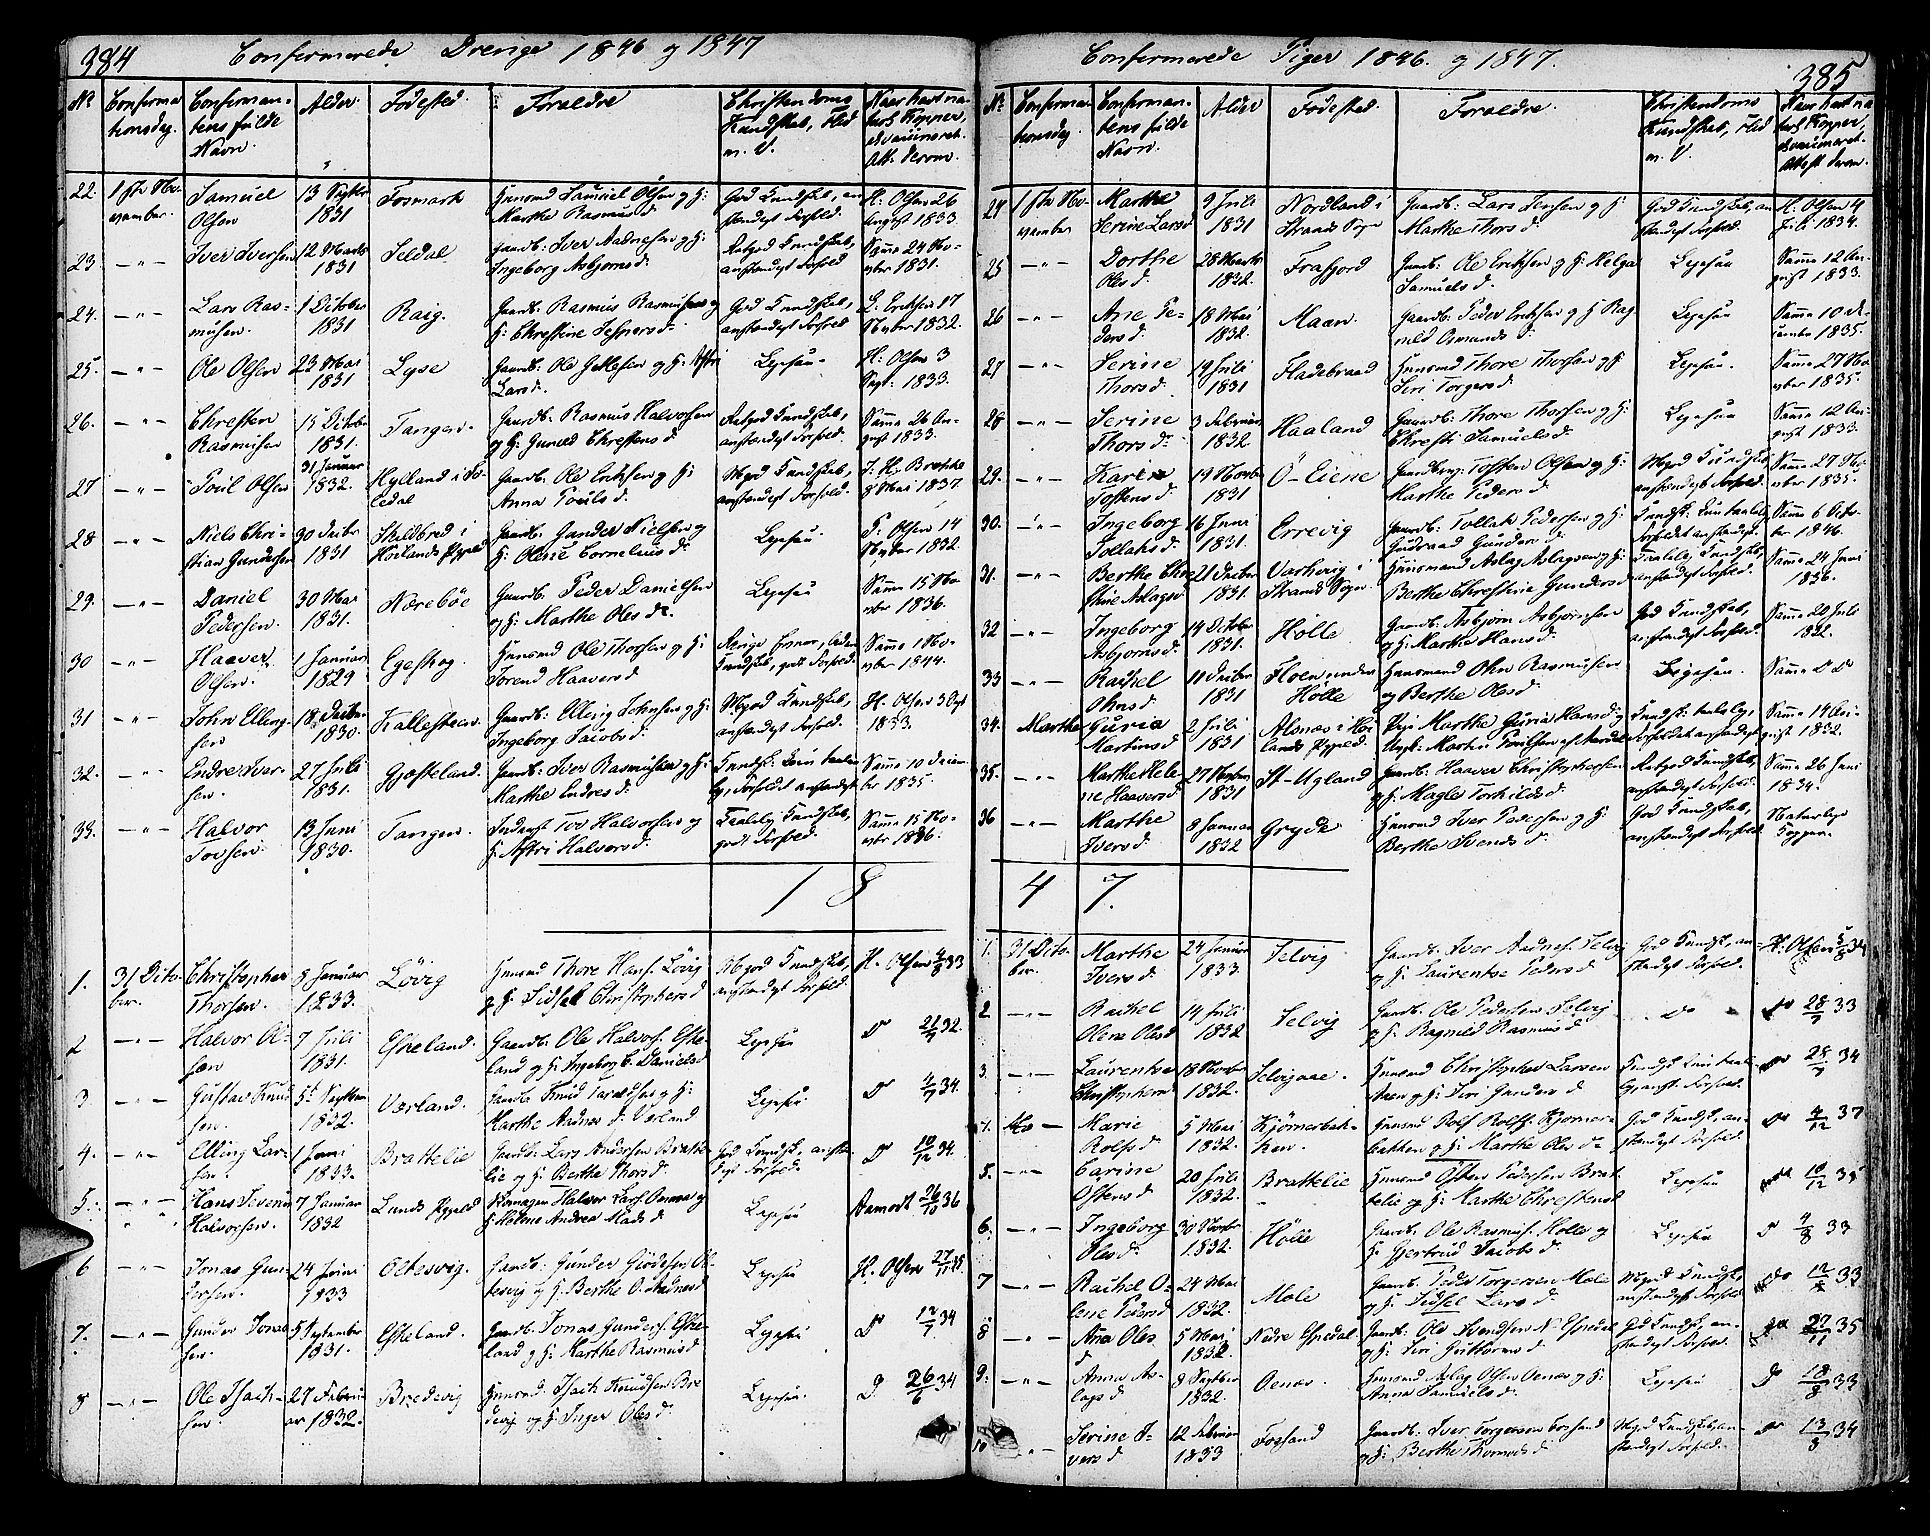 384
Confirmerede Drenge 1846 og 1847
No
Confirma
tionsdag.
Confirman-
tens fulde
Navn.
Alder.
Fødested.
Forældre
Christendoms
Kundskab, Flid
m. V.
Naar havt na-
turl. Kopper,
el. vaccineret.
Att. derom.
22. 1ste No-
vember.
Samuel
Olsen
13 Septbr
1831
Fosmark
Huusmd Samuel Olsen og H:
Marthe Rasmusd:
God Kundskab, an-
stændigt Forhold.
H. Olsen 26
August 1833.
23. -"- Iver Iversen
12 Marts
1831
Seldal
Gaardb: Iver Aadnesen og H:
Ingeborg Asbjørnsd:
Retgod Kundskab,
anstændigt Forhold
Samme 24 No-
vbr 1831.
24. -"- Lars Ras-
musen.
1 October
1831
Raig.
Gaardb: Rasmus Rasmusen og
H: Chrestine Jesperd:
God Kundskab,
anstændigt Forhold
L. Eriksen 17
Novbr 1832.
25. -"- Ole Olsen
23 Mai
1831
Lyse
Gaardb: Ole Gitlesen og H: Astri
Larsd.
Ligesaa
H. Olsen 3
Sept: 1833.
26. -"- Chresten
Rasmusen
15 Octobr
1831.
Tangen.
Gaardb: Rasmus Halvorsen
og H: Gunild Chrestensd:
Retgod Kundskab,
anstændigt Forhold.
Samme 26 Au-
gust 1833.
27 -"- Poul Olsen
31 Januar
1832.
Hylland i
Gaardb: Ole Eriksen og H:
Anna Poulsd:
Mgod Kundskab,
anstændigt Forhold.
8 Mai 1837
28 -"- Niels Chri-
stian Gundersen
30 Decbr
1831
Skildbred i
Høilands Pgjeld
Gaardb: Gunder Nielsen og
H: Olene Corneliusd:
Ligesaa
P. Olsen 14
Novbr 1832
29. -"- Daniel
Pedersen.
30 Mai
1831.
Nærebøe
Gaardb: Peder Danielsen
og H: Marthe Olesd:
Ligesaa
Samme 15 No-
vbr 1836.
30 -"- Haaver
Olsen.
1 Januar
1829
Egeskog.
Huusmd Ole Thorsen og H:
Torend Haaversd:
Kundskab, godt Forhold.
Samme 1 No-
vbr 1844.
31 -"- John Elling-
sen
18. Decbr
1830.
Kallesteen.
Gaardb: Elling Johnsen og H:
Ingeborg Jacobsd:
Mgod Kundskab,
anstændigt Forhold.
H. Olsen 3 Sept
1833
32. -"- Endre Iver-
sen.
27 Juli
1831.
Gjæsteland.
Gaardb: Iver Rasmusen og H:
Marthe Endresd:
Kundsk: kun taale-
lig, Forholdet anstændigt
Samme 10 Decem-
ber 1835.
33. -"- Halvor
Tovsen.
13 Juni
1830.
Tangen.
Inderst Tov Halvorsen og
H: Astri Halvorsd:
Taalelig Kundskab,
godt Forhold.
Samme 15 No-
vbr 1836.
18
1. 31 Octo-
ber.
Christopher
Thorsen.
8 Januar
1833.
Løvig
Huusmd Thore Hans. Løvig
og H: Sidsel Christophersd
Mgod Kundskab,
anstændigt Forhold.
H. Olsen 4/8 33
2 -"- Halvor Ol-
sen
7 Juli
1831.
Eskeland.
Gaardb: Ole Halvors. Eske-
land og H: Ingeborg C. Danielsd
Ligesaa
D 21/7 32.
3 -"- Gustav Knud
sen.
5t Septbr
1832.
Værland.
Gaardb: Knud Taraldsen og H:
Marthe Aadnesd: Værland
Ligesaa
D 4/7 34.
4. -"- Elling Lar-
sen.
1 Juni
1833.
Brattelie
Gaardb: Lars Andersen Bratte-
lie og H: Berthe Thorsd:
God Kundsk., anstæn-
digt Forhold.
D 10/12 34.
5. -"- Hans Severin
Halvorsen.
7 Januar
1832
Lunds Pgjeld
Halvor Lars. og
H: Helene Andrea Madsd:
Ligesaa
Aamodt 26/10 36
6 -"- Jonas Gun-
dersen.
24 Juni
1833
Oltesvig.
Gaardb: Gunder Giødesen Ol-
tesvig og H: Berthe O. Aadnesd
Ligesaa
H. Olsen 27/11 35
7. -"- Gunder Jonas-
sen.
5 September
1831.
Eskeland.
Gaardb: Jonas Gunders. Eske-
land og H: Marthe Rasmusd:
Ligesaa
D 12/7 34
8 -"- Ole Isach-
sen.
27 Febru-
ar 1832.
Bredevig
Huusmd. Isach Knudsen Bre-
devig og H: Inger Olesd:
Ligesaa.
D 26/6 34
Confirmerede Piger 1846. og 1847.
385
No
Confirma-
tionsdag.
Confirman-
tens fulde
Navn.
Alder
Fødested
Forældre.
Christendoms
Kundskab, Flid
m. V.
Naar havt na-
turl. Kopper,
el. vaccineret.
Attest derom.
24 1ste No-
vember
Marthe
Serine Larsd
9 Juli
1831
Nordland i
Strands Sogn
Gaardb: Lars Jensen og H:
Marthe Thorsd:
God Kundskab, an-
stændigt Forhold.
H. Olsen 4
Juli 1834.
25 -"- Dorthe
Olesd:
28 Marts
1832.
Frafjord
Gaardb: Ole Eriksen og H: Helga
Samuelsd:
Ligesaa
Samme 12 Au-
gust 1833.
26 -"- Ane Pe-
dersd:
18 Mai
1832.
Maan.
Gaardb: Peder Eriksen og H: Rag-
nild Osmundsd:
Ligesaa
Samme 10 De-
cember 1835.
27 -"- Serine
Thorsd:
19 Juli
1831
Fladebraad
Huusmd Thore Thorsen og H:
Siri Torgersd:
Ligesaa
Samme 27 No-
vber 1835.
28 -"- Serine
Thorsd:
3 Februar
1832.
Haaland
Gaardb: Thore Thorsen og H:
Chresti Samuelsd:
Ligesaa
Samme 12 Au-
gust 1833.
29. -"- Karen
Tostensd:
19 Novbr
1831
Ø-Eiene
Gaardbrug: Tosten Olsen og H:
Marthe Pedersd:
Mgod Kundskab,
anstændigt Forhold.
Samme 27 No-
vber 1835.
30. -"- Ingeborg
Tollaksd:
16 Juni
1831.
Errevig
Gaardb: Tollak Pedersen og H:
Gudraad Gundersd:
Kundsk: kun taalelig,
Forholdet anstændigt.
Samme 6 Octo-
ber 1846.
31. -"- Berthe Chre-
stine Aslagsd
21 Decbr
1831.
Vathvig i
Strands Sogn.
Huusmand Aslag Aslagsen og H:
Berthe Chrestine Gundersd
Taalelig Kundskab,
anstændigt Forhold.
Samme 24 Juni
1836.
32 -"- Ingeborg
Asbjørnsd:
14 Octobr
1831.
Hølle
Gaardb: Asbjørn Asbjørnsen
og H: Marthe Hansd:
God Kundskab,
anstændigt Forhold.
Samme 20 Juli
1832.
33 -"- Rachel
Ohnsd:
11 Decbr
1831
Floen under
Hølle
Huusmand Ohn Rasmusen
og Berthe Olesd:
Ligesaa.
Samme D D
34. Marthe
Guria
Martinsd:
2 Juli
1831
Alsnes i Høi-
lands Pgjeld.
Pige Marthe Guria Hansd: og
Ungk: Martin Poulsen
Kundsk: taalelig,
Forholdet anstændigt
Samme 14 Au-
gust 1832.
35. -"- Marthe Hele-
ne Haaversd:
27 Novbr
1831
St-Ueland
Gaardb: Haaver Christophersen
og H: Magle Torkildsd:
Retgod Kundskab,
anstændigt Forhold.
Samme 26 Juni
1834.
36 -"- Marthe
Iversd:
8 Januar
1832
Gryde
Huusmd Iver Pedersen og H:
Berthe Svendsd:
God Kundskab,
anstændigt Forhold
Naturlige
Kopper.
47.
1. 31 Octo-
ber.
Marthe
Iversd:
24 Januar
1833.
Selvig
Gaardb: Iver Aadnes. Selvig
og H: Laurentse Pedersd:
God Kundsk., an-
stændigt Forhold.
H. Olsen 5/8 34
2 -"- Rachel
Olena Olesd
14 Juli
1832
Selvig
Gaardb: Ole Pedersen Selvig
og H: Ragnild Rasmusd:
Do
Do 28/7 33
3. -"- Laurentse
Christophersd
18 Novbr
1832.
Selvigaae.
Huusmd Christopher Larsen
Aaen og H: Siri Gundersd
Kundsk. kun taale-
lig, anst. Forhold.
Do 28/7 34
4. Marie
Rolfsd:
5 Mai
1832.
Kjømerbak-
ken.
Huusmd Rolf Rolfs. Kjømer-
bakken og H: Marthe Olesd:
God Kundsk., an-
stændigt Forhold.
Do 4/12 37
5. -"- Carine
Ostensd:
20 Juli
1832.
Brattelie
Huusmd Osten Pedersen Brat-
telie og H: Marthe Chrestensd
Ligesaa
Do 10/12 35
6. -"- Ingeborg
Olesd:
30 Novbr
1832.
Hølle
Gaardb: Ole Rasmus. Hølle og
H: Gjertrud Jacobsd:
Ligesaa
D 4/8 33
7 -"- Rachel O-
lene Pedersd:
24 Mai
1832.
Mæle
Gaardb: Peder Torgersen Mæle
og H: Sidsel Larsd:
Mgod Kundsk.,
anstændigt Forhold.
Do 33
8 -"- Ana Oles
d
5 Mai
1832
Nedre Espedal
Gaardb: Ole Svendsen N. Espedal
og H: Siri Guttormsd:
God Kundsk., an-
stændigt Forhold.
Do 27/11 35
9. -"- Anna As-
lagsd:
8 Septbr
1832.
Oenæs.
Huusmd Aslag Olsen Oenæs og H:
Anna Samuelsd:
Ligesaa
D 18/8 33
10 -"- Serine I-
versd
12 Februar
1833
Fossand
Gaardb: Iver Torgersen Fossand
og H: Berthe Thomasd:
Mgod Kundskab, an-
stændigt Forhold.
Do 13/8 34